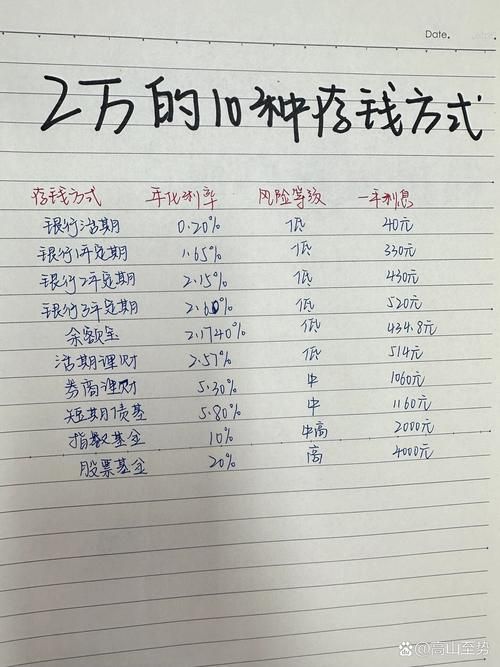 Date.
2万的10种存钱方式
存钱方式 年化利率 风险等级 一年利息
银行活期 0.20% 低 40元
银行1年定期 1.65% 低 330元
银行2年定期 2.15% 低 430元
银行3年定期 2.60% 低 520元
余额宝 2.1740% 低 434.8元
活期理财 2.57% 低 514元
券商理财 5.30% 中 1060元
短期债基 5.80% 中 1160元
指数基金 10% 中高 2000元
股票基金 20% 高 4000元
@高山至势